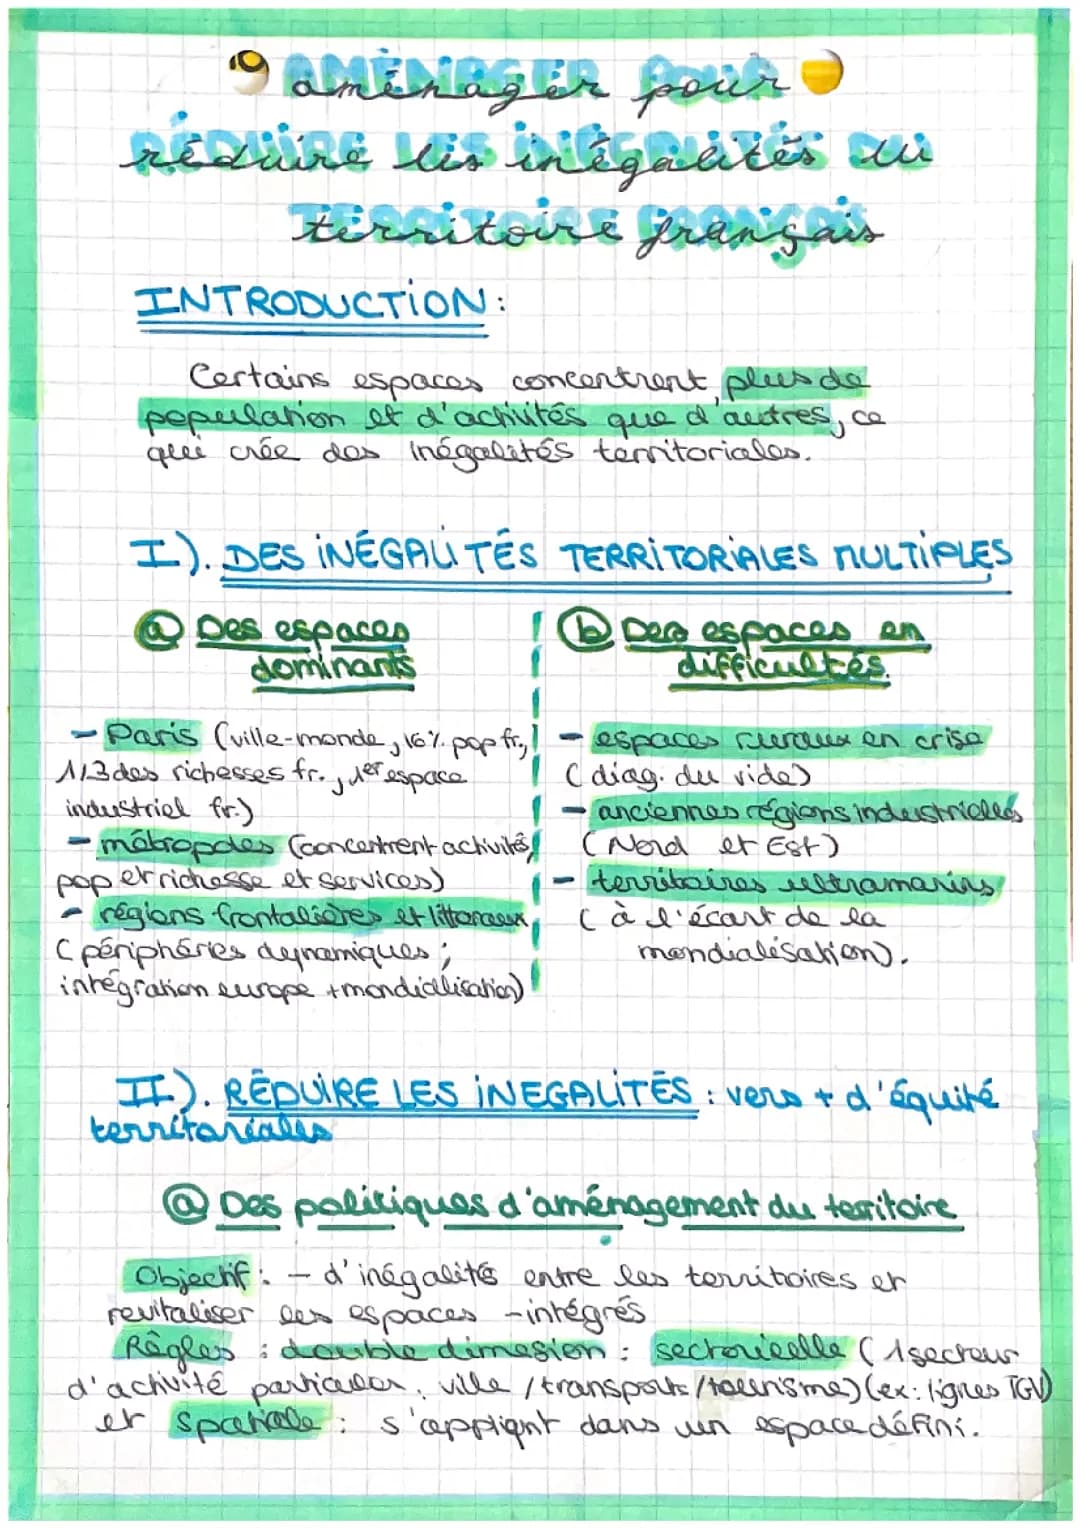 aménager pour
réduire les inégalités du
territoire français
INTRODUCTION :
Certains espaces concentrent plus de
population et d'activités que d'autres, ce
qui crée des inégalités territoriales.
I). DES INÉGALITÉS TERRITORIALES MULTIPLES
a Des espaces
dominants
- Paris (ville-monde, 16% pop fr,
1/3 des richesses fr., 1er espace
industriel fr.)
- métropoles (concentrent activités,
pop et richesse et services)
- régions frontalières et littoraux
(périphéries dynamiques ;
intégration europe + mondialisation)
b Des espaces en
difficultés.
- espaces ruraux en crise
(diag. du vide)
- anciennes régions industrielles
(Nord et Est)
- territoires ultramarins
(à l'écart de la
mondialisation).
II). RÉDUIRE LES INEGALITÉS : vers + d'équité
territoriales
a Des politiques d'aménagement du territoire
Objectif : - d'inégalités entre les territoires et
revitaliser les espaces - intégrés
Règles : double dimesion : sectorielle (1 secteur
d'activité particulier, ville / transports / tourisme) (ex : lignes TGV)
et spatiale : s'appliqnt dans un espace défini.